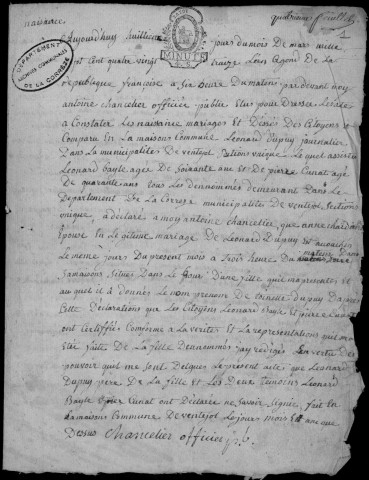 naissance quatrieme feuillet
1
DEPARTEMENT
ARCHIVES COMMUNALES
DE LA CORREZE
MINUTE
Aujourdhuy huitieme jours du mois de mars mille
sept cent quatre vingt traize Lans segond de La
republique francoise a heure Du matens pardevant moy
antoine chancelier officier public elus pour Dresser
a Constater Les naissance mariages et Déses Des Citoyens
Comparu En La maisons Commune Leonard Dupuy journalier
Dans La municipalites De ventejot sections unique Le quel assisté
Leonard bayle agee De Soixante ans et De pierre Cunat agé
De quarante ans tous Les dennommés demeurant Dans Le
Departement De La Correze municipalites De ventejol sections
unique, a declaré a moy antoine chancelier, que anne
Epouse En Le gitime mariage De Leonard Dupuy est accouchée
Le meme jours Du present mois a trois heure Du matens Dans
Samaisons Situés Dans Le D'une fille quil ma presente et
au quel il a donnés Le nom prenom De toinette Dupuy Dapres
Cette Déclarations que Les Citoyens Léonard Bayle et piere Cunat
ont certiffiés Conforme a La verites et La représentations que ma
Eté faite De La fille Dennommés jay redigés En vertu des
pouvoir quil me sont Delgues Le present acte que Leonard
Dupuy pere De La fille et Les Deux temoens Leonard
Bayle piere Cunat ont Declarée ne Savoir Signée, fait En
Lamaisons Commune De ventejol Le jour mois Et ans que
Dessus Chancelier officier pb.